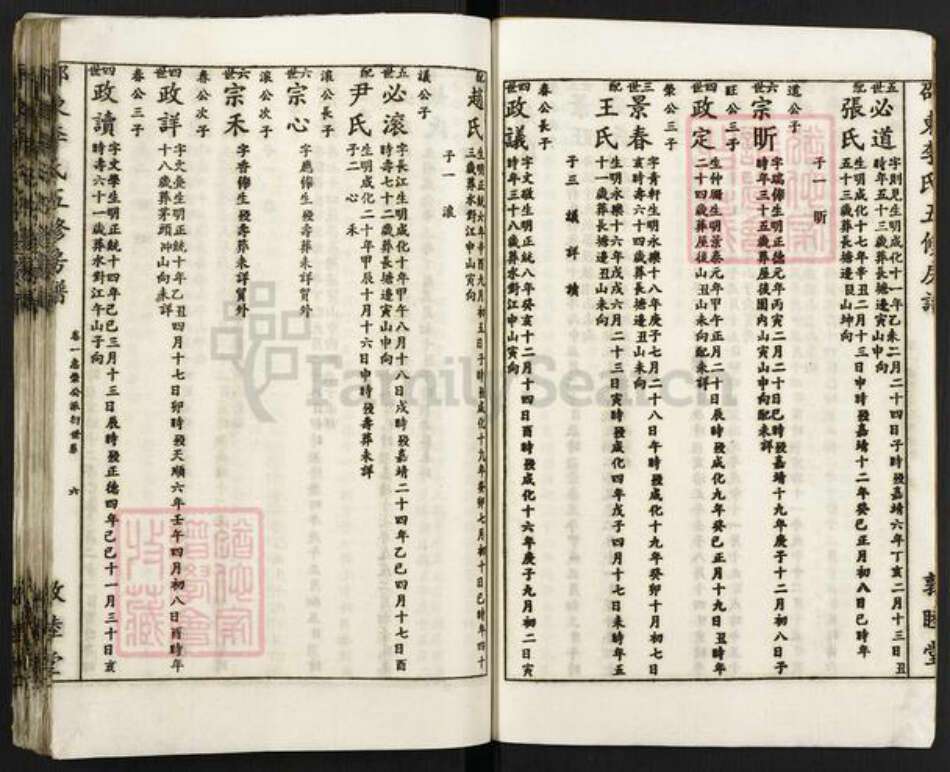 邵東李氏五修房譜
敦睦堂
五世
必道
字則見生明成化十一年乙未二月二十四日子時歿嘉靖六年丁亥二月十三日丑
時年五十三歲葬長塘邊寅山申向
配
張氏
生明成化十七年辛丑二月十三日申時歿嘉靖十二年癸巳正月初八日巳時年
五十三歲葬長塘邊艮山坤向
子一 昕
道公子
六世
宗昕
字瑞徘生明正德元年丙寅二月二十日巳時歿嘉靖十九年庚子十二月初八日子
時年三十五歲葬屋後園內山寅山申向配未詳
旺公三子
四世
政定
生仲彌生明景泰元年甲午正月二十日辰時歿成化九年癸巳正月十九日丑時年
二十四歲葬屋後山丑山未向配未詳
榮公三子
三世
景春
字青軒生明永樂十八年庚子七月二十八日午時歿成化十九年癸卯十月初七日
亥時壽六十四歲葬長塘邊丑山未向
配
王氏
生明永樂十六年戊戌六月二十三日寅時歿成化四年戊子四月十七日未時年五
十一歲葬長塘邊丑山未向
子三 議 詳 讀
春公長子
四世
政議
字文啟生明正統八年癸亥十二月十四日酉時歿成化十六年庚子九月初二日寅
時年三十八歲葬水對江申山寅向
配
趙氏
生明正統六年辛酉九月初五日子時歿成化十九年癸卯七月初十日巳時年四十
三歲葬水對江申山寅向
子一 滾
議公子
五世
必滾
字長江生明成化十年甲午八月十八日戌時歿嘉靖二十四年乙巳四月十七日酉
時壽七十二歲葬長塘邊寅山申向
配
尹氏
生明成化二十年甲辰十月十六日申時歿壽葬未詳
子二 心 禾
滾公長子
六世
宗心
字應徘生歿壽葬未詳贅外
滾公次子
六世
宗禾
字香徘生歿壽葬未詳贅外
春公次子
四世
政詳
字文臺生明正統十年乙丑四月十七日卯時歿天順六年壬午四月初八日酉時年
十八歲葬茅頭沖山向未詳
春公三子
四世
政讀
字文學生明正統十四年己巳三月十三日辰時歿正德四年己巳十一月三十日亥
時壽六十一歲葬水對江午山子向
邵東李氏五修房譜
卷一忠榮公派衍世系
六
敦睦堂
FamilySearch